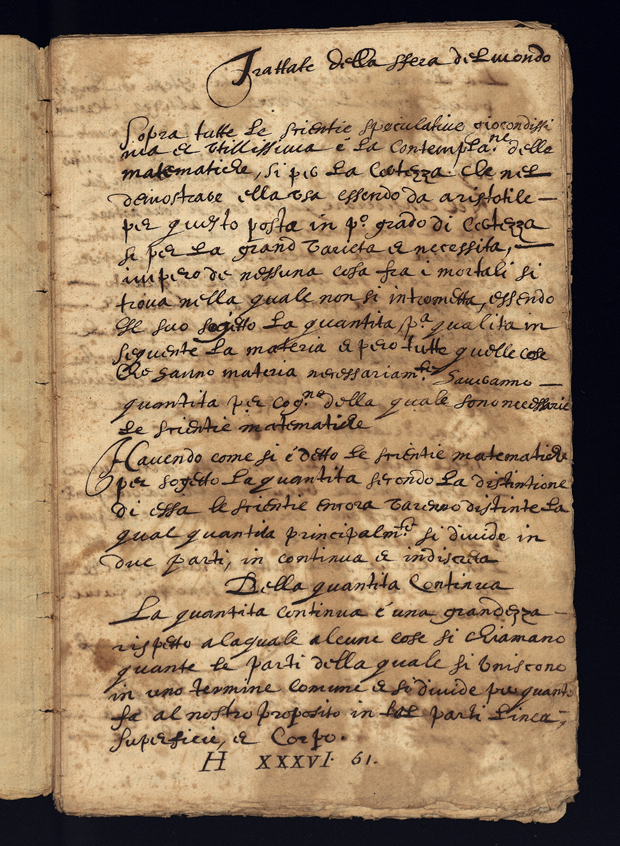 Trattate della sfera del mondo
Sopra tutte le scientie speculative giocondissi
ma et utilissima é la contempla.ne delle
matematiche, si per la certezza che nel
demostrare ella usa essendo da aristotile —
per questo posta in p.o grado di certezza
si per la grand varieta et necessita, —
impero che nessuna cosa fra i mortali si
trova nella quale non si intrometta, essendo
il suo sogetto la quantita p.a qualita in
seguente la materia et pero tutte quelle cose
che hanno materia necessariam.te haveranno —
quantita per cog.ne della quale sono necessarie
le scientie matematiche
Havendo come si é detto le scientie matematiche
per sogetto la quantita secondo la distintione
di essa le scientie encora varenno distinte la
qual quantita principalm.te si divide in
due parti, in continua et indiscreta
Della quantita Continua
La quantita continua é una grandezza —
rispetto alaquale alcune cose si chiamano
quante le parti della quale si uniscono
in uno termine comune et si divide per quanto
fa al nostro proposito in parti Linea,
superficie, et Corpo.
H XXXVI. 61.